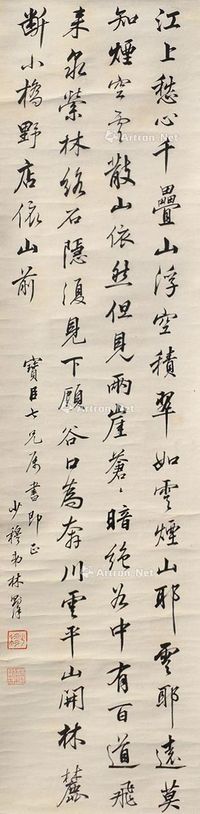 江上愁心千疊山浮空積翠如雲煙山耶雲耶遠莫
知煙空雲散山依然但見兩崖蒼々暗絕谷中有百道飛
來泉縈林絡石隱復見下顧谷口為奔川雲平山開林麓
斷小橋野店依山前
寶臣七兄屬書即正
少穆弟林